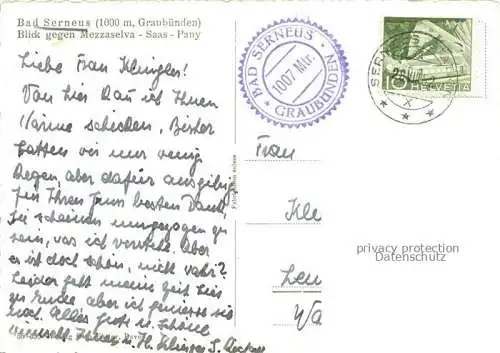 Bad Serneus (1000 m, Graubünden)
Blick gegen Mezzaselva - Saas - Pany
Liebe Frau Klingler!
Von hier kann ich Ihnen
Wärme schicken. Bisher
hatten wir nur wenig
Regen, aber dafür ausgibig
Für Ihren Gruss besten Dank
Sie scheinen umgezogen zu
sein, was ich verstehe. Aber
es ist doch schön, nicht wahr?
Leider geht meine Zeit hier
zu Ende aber ich geniesse sie
noch. Alles Gute u. schöne
wünscht Ihnen u. H. Klingler S.
BAD SERNEUS
1007 Mtr.
GRAUBÜNDEN
SERNEUS
10 HELVETIA
X
Frau
Kle
privacy protection
Datenschutz